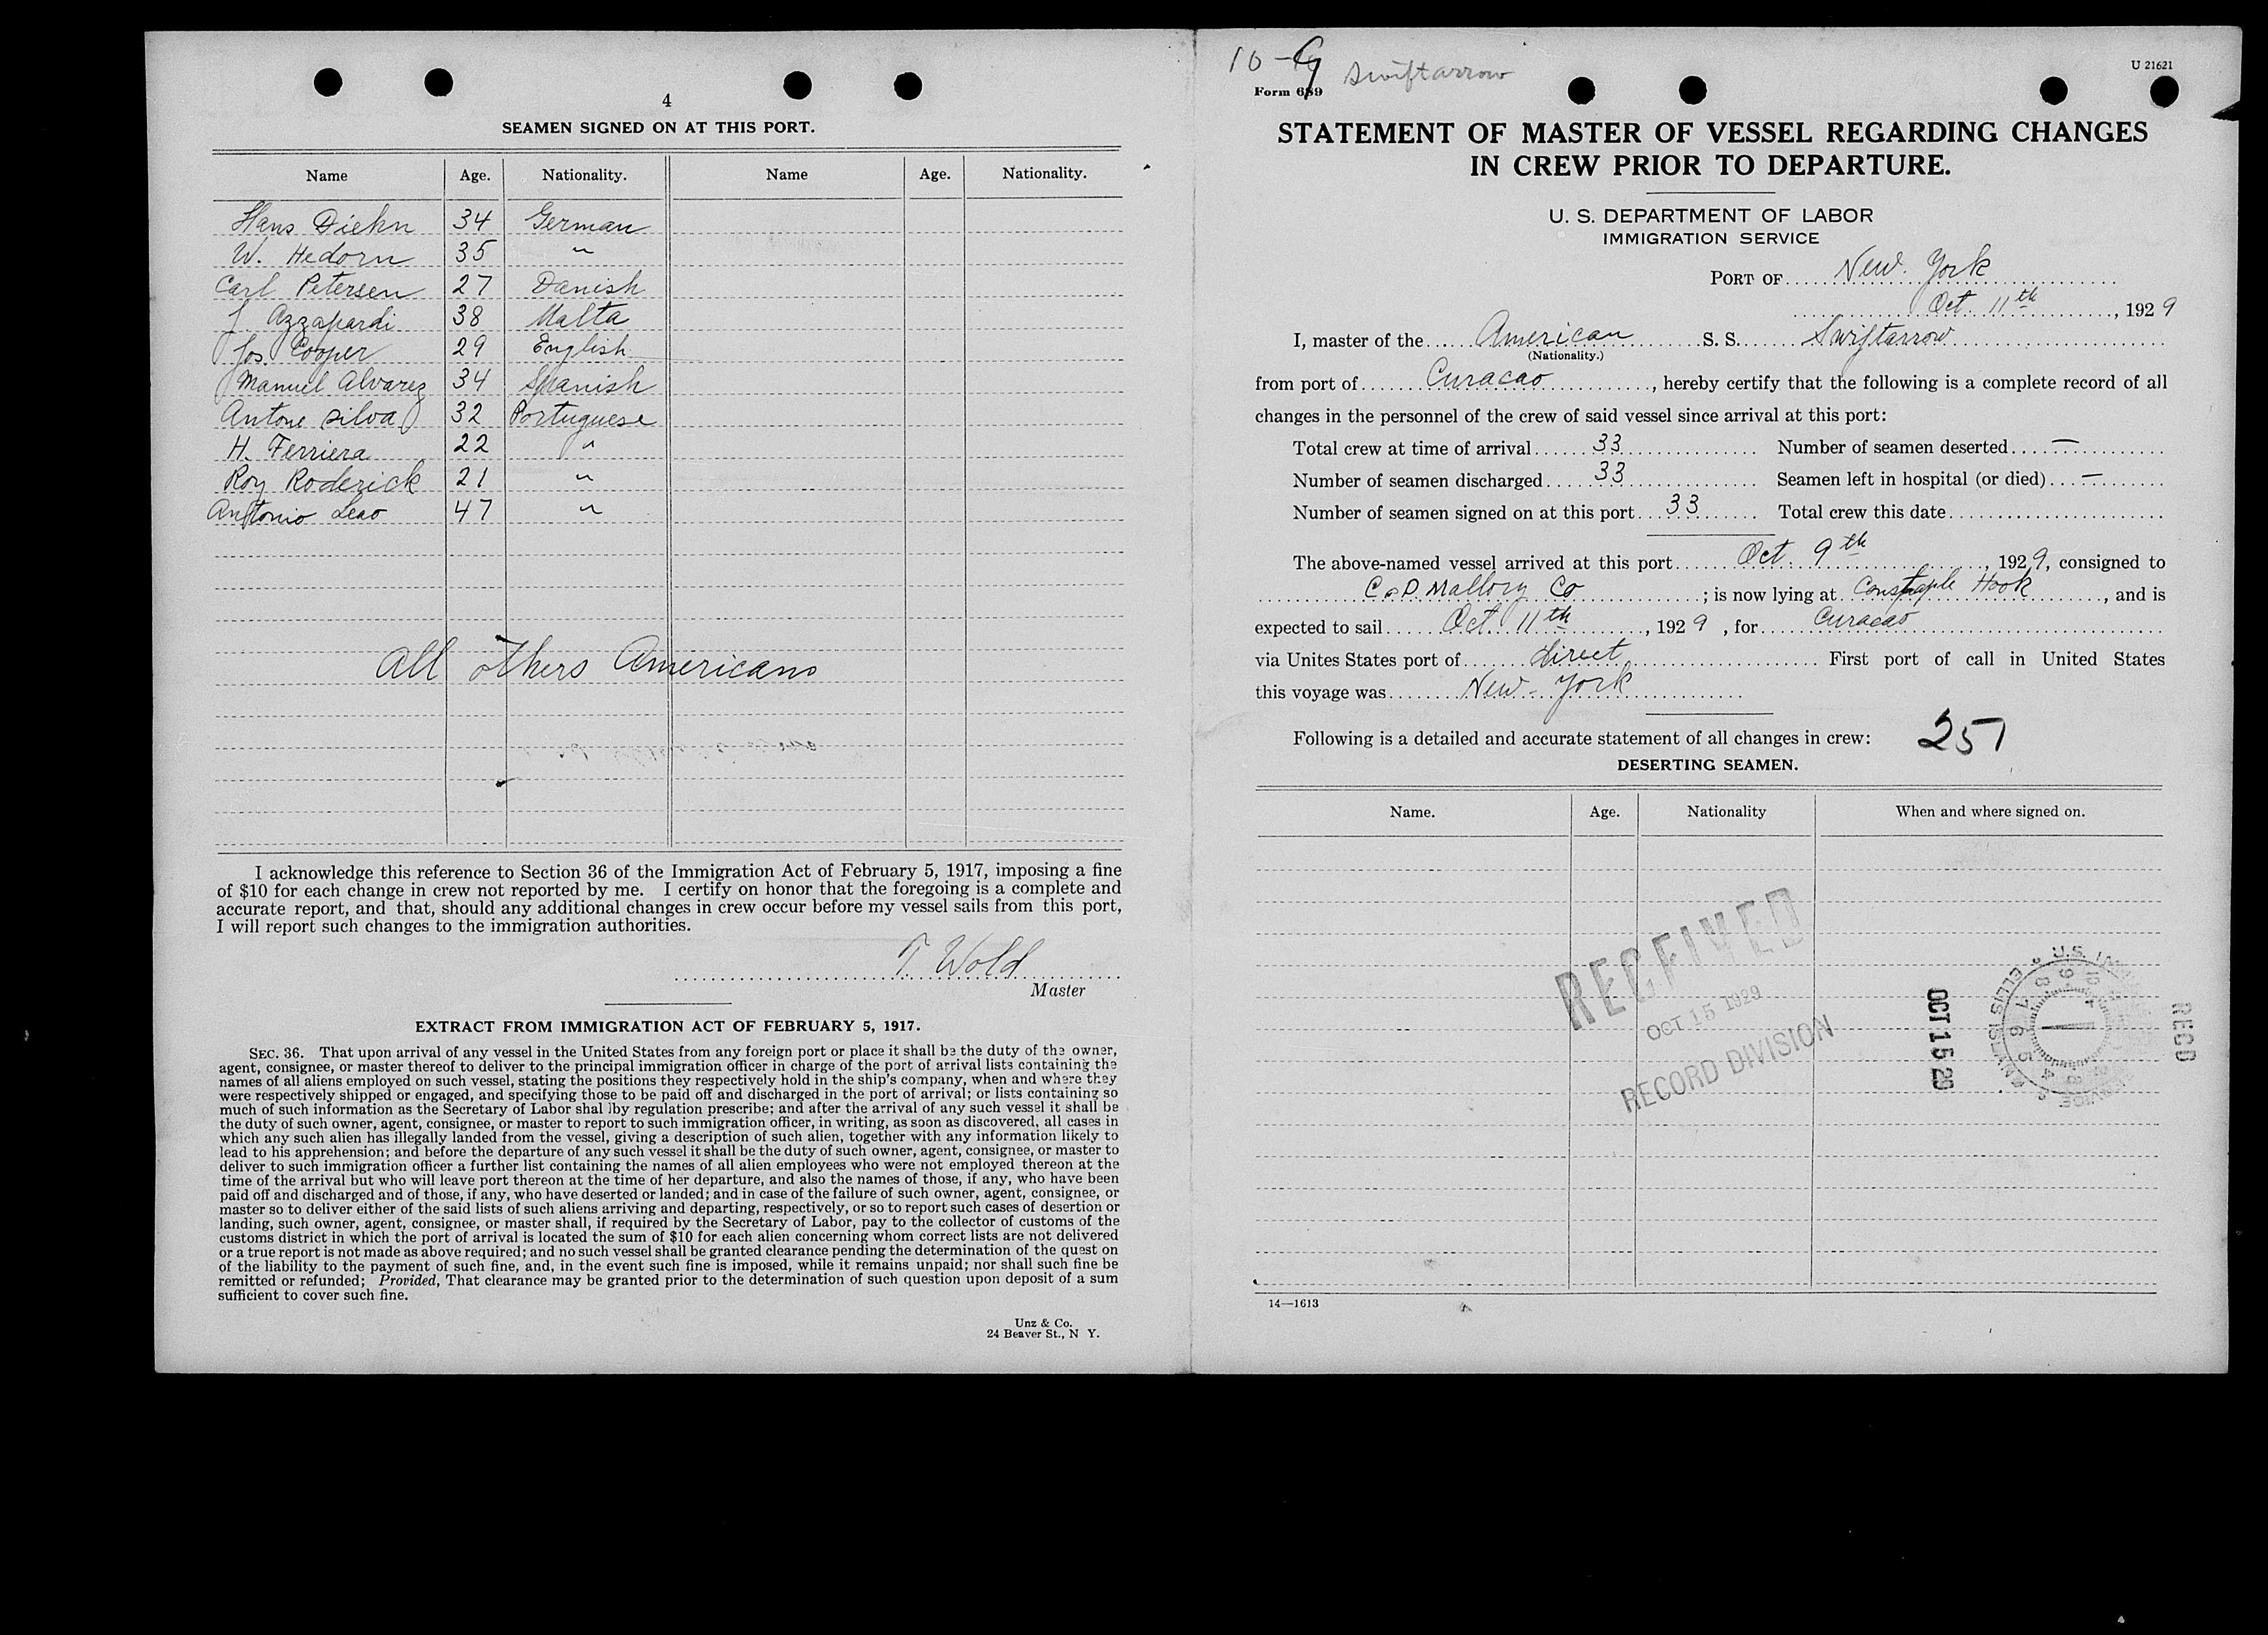 4
SEAMEN SIGNED ON AT THIS PORT.
Name Age. Nationality. Name Age. Nationality.
Hans Diehn 34 German
W. Hedorn 35 "
Carl Petersen 27 Danish
J. Azzapardi 38 Malta
Jos Cooper 29 English
Manuel Alvarez 34 Spanish
Antone Silva 32 Portuguese
H. Ferriera 22 "
Roy Roderick 21 "
Antonio Leao 47 "
All others Americans
I acknowledge this reference to Section 36 of the Immigration Act of February 5, 1917, imposing a fine
of $10 for each change in crew not reported by me. I certify on honor that the foregoing is a complete and
accurate report, and that, should any additional changes in crew occur before my vessel sails from this port,
I will report such changes to the immigration authorities.
T Wold
Master
EXTRACT FROM IMMIGRATION ACT OF FEBRUARY 5, 1917.
SEC. 36. That upon arrival of any vessel in the United States from any foreign port or place it shall be the duty of the owner,
agent, consignee, or master thereof to deliver to the principal immigration officer in charge of the port of arrival lists containing the
names of all aliens employed on such vessel, stating the positions they respectively hold in the ship's company, when and where they
were respectively shipped or engaged, and specifying those to be paid off and discharged in the port of arrival; or lists containing so
much of such information as the Secretary of Labor shal lby regulation prescribe; and after the arrival of any such vessel it shall be
the duty of such owner, agent, consignee, or master to report to such immigration officer, in writing, as soon as discovered, all cases in
which any such alien has illegally landed from the vessel, giving a description of such alien, together with any information likely to
lead to his apprehension; and before the departure of any such vessel it shall be the duty of such owner, agent, consignee, or master to
deliver to such immigration officer a further list containing the names of all alien employees who were not employed thereon at the
time of the arrival but who will leave port thereon at the time of her departure, and also the names of those, if any, who have been
paid off and discharged and of those, if any, who have deserted or landed; and in case of the failure of such owner, agent, consignee, or
master so to deliver either of the said lists of such aliens arriving and departing, respectively, or so to report such cases of desertion or
landing, such owner, agent, consignee, or master shall, if required by the Secretary of Labor, pay to the collector of customs of the
customs district in which the port of arrival is located the sum of $10 for each alien concerning whom correct lists are not delivered
or a true report is not made as above required; and no such vessel shall be granted clearance pending the determination of the quest on
of the liability to the payment of such fine, and, in the event such fine is imposed, while it remains unpaid; nor shall such fine be
remitted or refunded; Provided, That clearance may be granted prior to the determination of such question upon deposit of a sum
sufficient to cover such fine.
Unz & Co.
24 Beaver St., N Y.
Swiftarrow
U 21621
Form 689
STATEMENT OF MASTER OF VESSEL REGARDING CHANGES
IN CREW PRIOR TO DEPARTURE.
U. S. DEPARTMENT OF LABOR
IMMIGRATION SERVICE
PORT OF New York
Oct. 11th, 1929
I, master of the American S. S. Swiftarrow
(Nationality.)
from port of Curacao, hereby certify that the following is a complete record of all
changes in the personnel of the crew of said vessel since arrival at this port:
Total crew at time of arrival 33 Number of seamen deserted —
Number of seamen discharged 33 Seamen left in hospital (or died) —
Number of seamen signed on at this port 33 Total crew this date
The above-named vessel arrived at this port Oct. 9th, 1929, consigned to
C. D. Mallory Co; is now lying at Constaple Hook, and is
expected to sail Oct. 11th, 1929, for Curacao
via Unites States port of direct First port of call in United States
this voyage was New-York
Following is a detailed and accurate statement of all changes in crew: 251
DESERTING SEAMEN.
Name. Age. Nationality When and where signed on.
RECEIVED
OCT 15 1929
RECORD DIVISION
OCT 15 29
RECD
14—1613